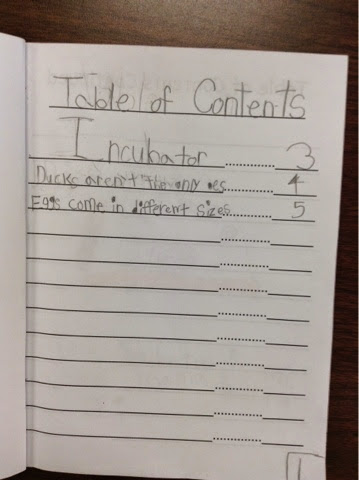 Table of Contents
Incubator............3
Ducks aren't the only oes............4
Eggs come in different sizes............5
1